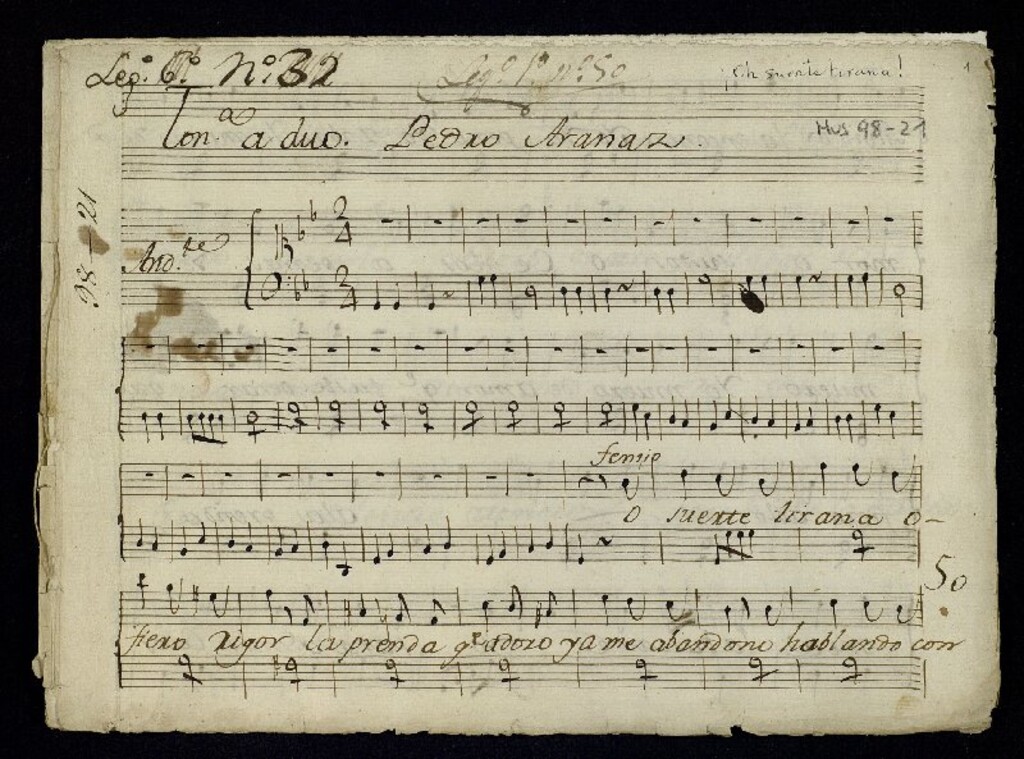 Leg.º 6.º N.º 32
Leg.º 1.º nº 50
¡Oh suerte tirana!
1
Ton.ª a duo. Pedro Aranaz.
Mus 98-21
98-21
And.te
2 4
2 4
O suerte tirana o-
50
fiero rigor la prenda q.e adoro ya me abandono hablando con